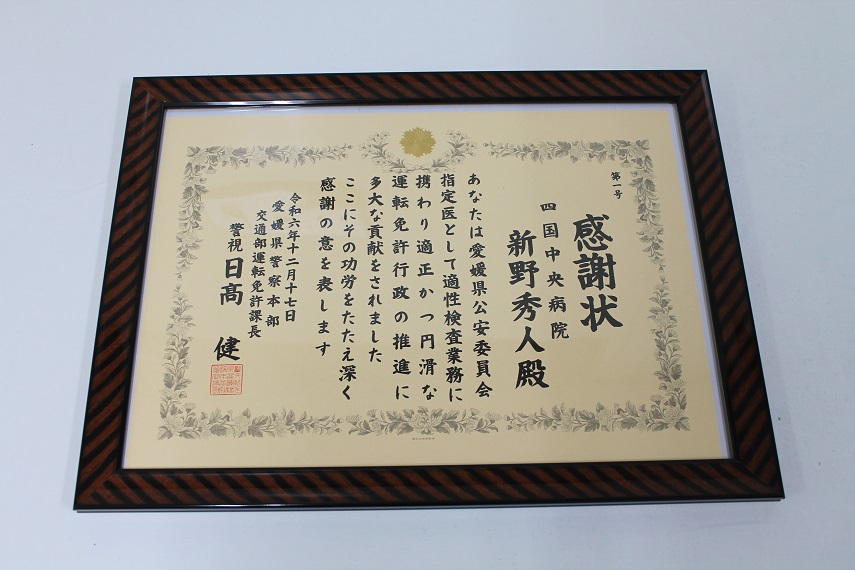 第一号
感謝状
四国中央病院
新野秀人殿
あなたは愛媛県公安委員会
指定医として適性検査業務に
携わり適正かつ円滑な
運転免許行政の推進に
多大な貢献をされました
ここにその功労をたたえ深く
感謝の意を表します
令和六年十二月十七日
愛媛県警察本部
交通部運転免許課長
警視 日髙 健